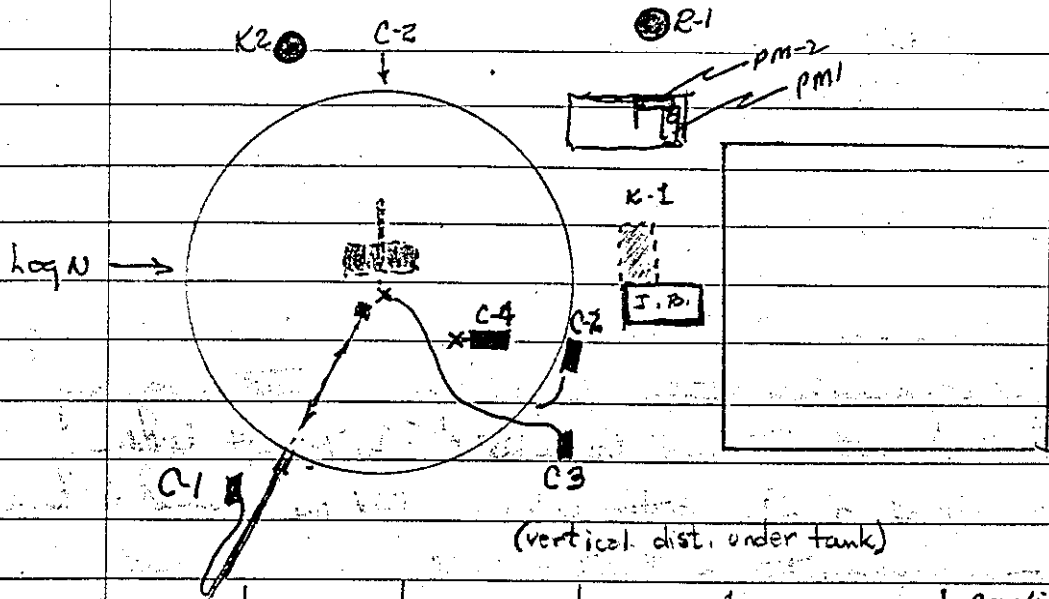 K2
C-2
R-1
PM-2
PM1
K-1
Log N
J.B.
C-4
C-2
C-1
C3
(vertical dist. under tank)